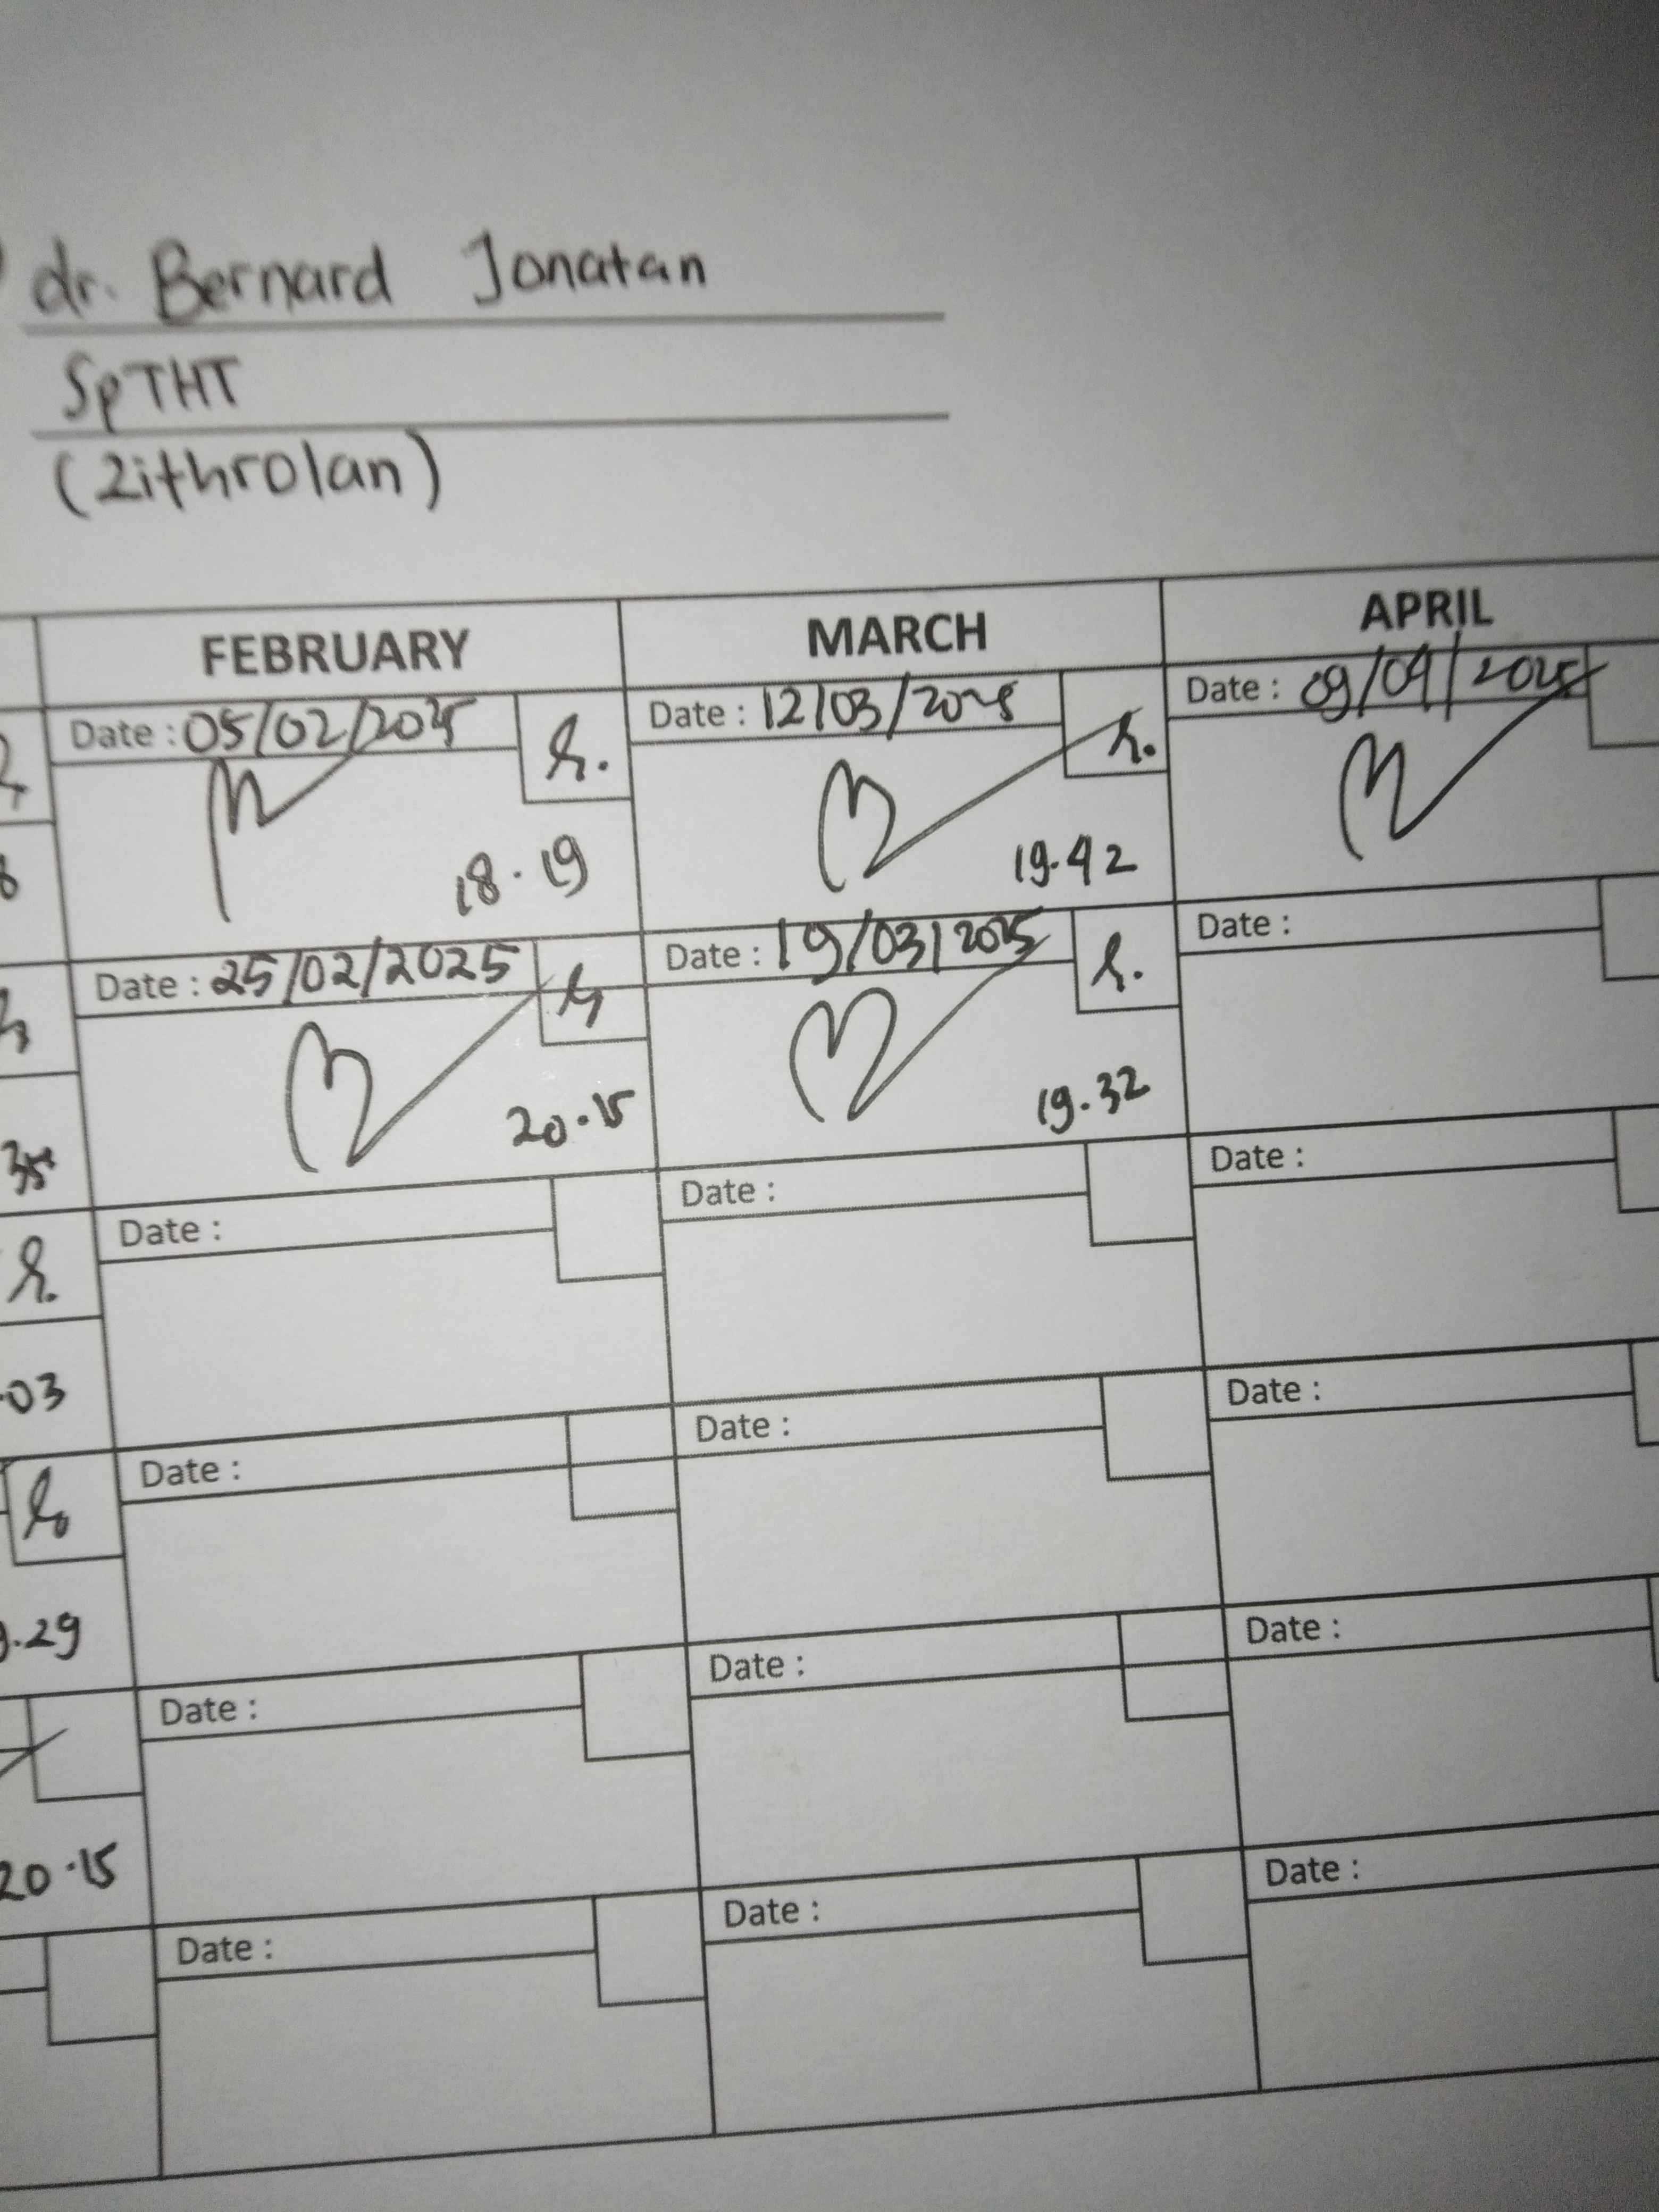 dr. Bernard Jonatan
SpTHT
(Zithrolan)
FEBRUARY MARCH APRIL
Date : 05/02/2025 Date : 12/03/2025 Date : 09/04/2025
18.19 19.42
Date : 25/02/2025 Date : 19/03/2025 Date :
20.15 19.32
35
Date : Date : Date :
.03
Date : Date : Date :
.29
Date : Date : Date :
20.15
Date : Date : Date :